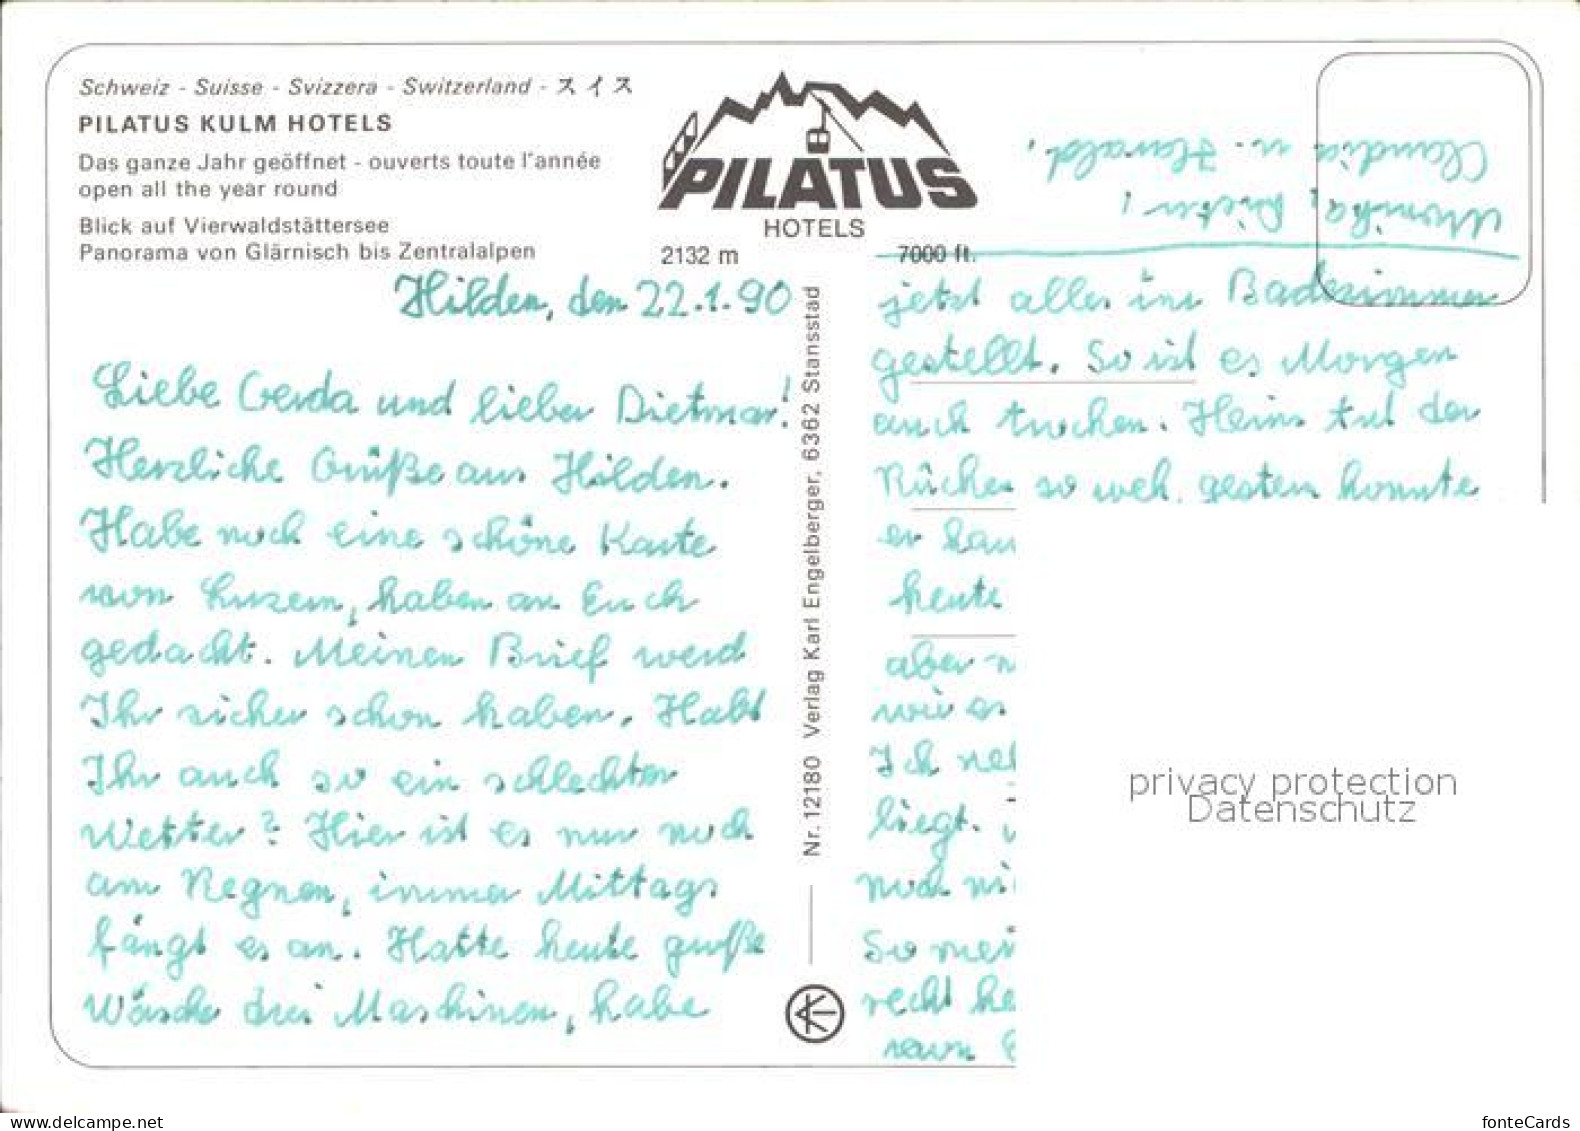 Schweiz - Suisse - Svizzera - Switzerland - スイス
PILATUS KULM HOTELS
Das ganze Jahr geöffnet - ouverts toute l'année
open all the year round
Blick auf Vierwaldstättersee
Panorama von Glärnisch bis Zentralalpen
PILATUS
HOTELS
2132 m 7000 ft.
Hilden, den 22.1.90
Liebe Gerda und lieber Dietmar!
Herzliche Grüße aus Hilden.
Habe noch eine schöne Karte
von Luzern, haben an Euch
gedacht. Meinen Brief werd
Ihr sicher schon haben. Habt
Ihr auch so ein schlechten
Wetter? Hier ist es nur noch
am Regnen, immer Mittags
fängt es an. Hatte heute große
Wäsche drei Maschinen, habe
Nr. 12180 Verlag Karl Engelberger, 6362 Stansstad
jetzt alles ins Badezimmer
gestellt. So ist es Morgen
auch trocken. Heinz tut der
Rücken so weh, gestern konnte
er kau
heute
aber
wie es
Ich
liegt.
noch
So
recht
Monika, Dieter,
Claudia u. Harald.
privacy protection
Datenschutz
www.delcampe.net
fonteCards